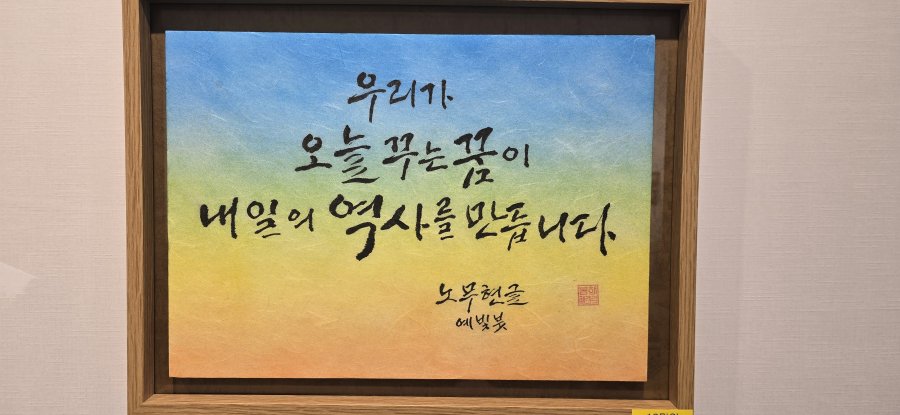 우리가
오늘 꾸는 꿈이
내일의 역사를 만듭니다.
노무현글
예빛붓